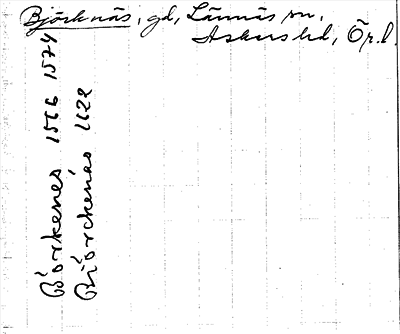 Björknäs, gd, Lännäs sn,
Askers hd, Ör. l.
Börkenes 1566 1574
Biörckenäs 1622